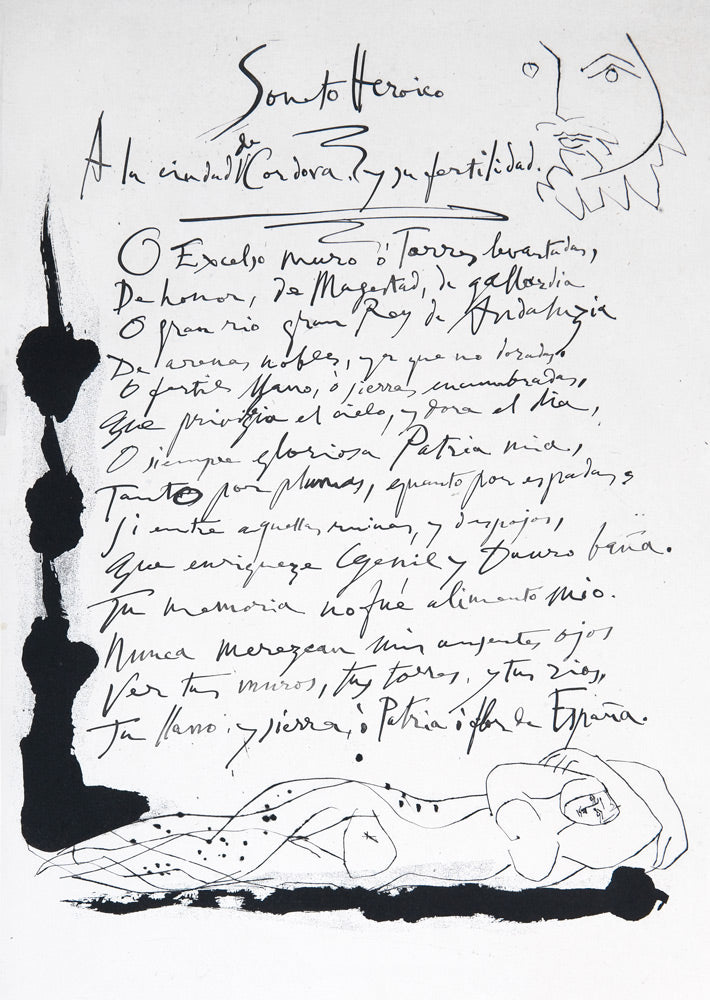 Soneto Heroico
A la ciudad de Cordova. y su fertilidad.
O Excelso muro ô Torres levantadas,
De honor, de Magestad, de gallardia
O gran rio gran Rey de Andaluzia
De arenas nobles, ya que no doradas.
O fertil llano, ô sierras encumbradas,
Que privilegia el cielo, y dora el dia,
O siempre gloriosa Patria mia,
Tanto por plumas, quanto por espadas
Si entre aquellas ruinas, y despojos,
Que enriqueze Genil y Dauro baña.
Tu memoria no fué alimento mio.
Nunca merezcan mis ausentes ojos
Ver tus muros, tus torres, y tus rios,
Tu llano, y sierra, ô Patria ô flor de España.